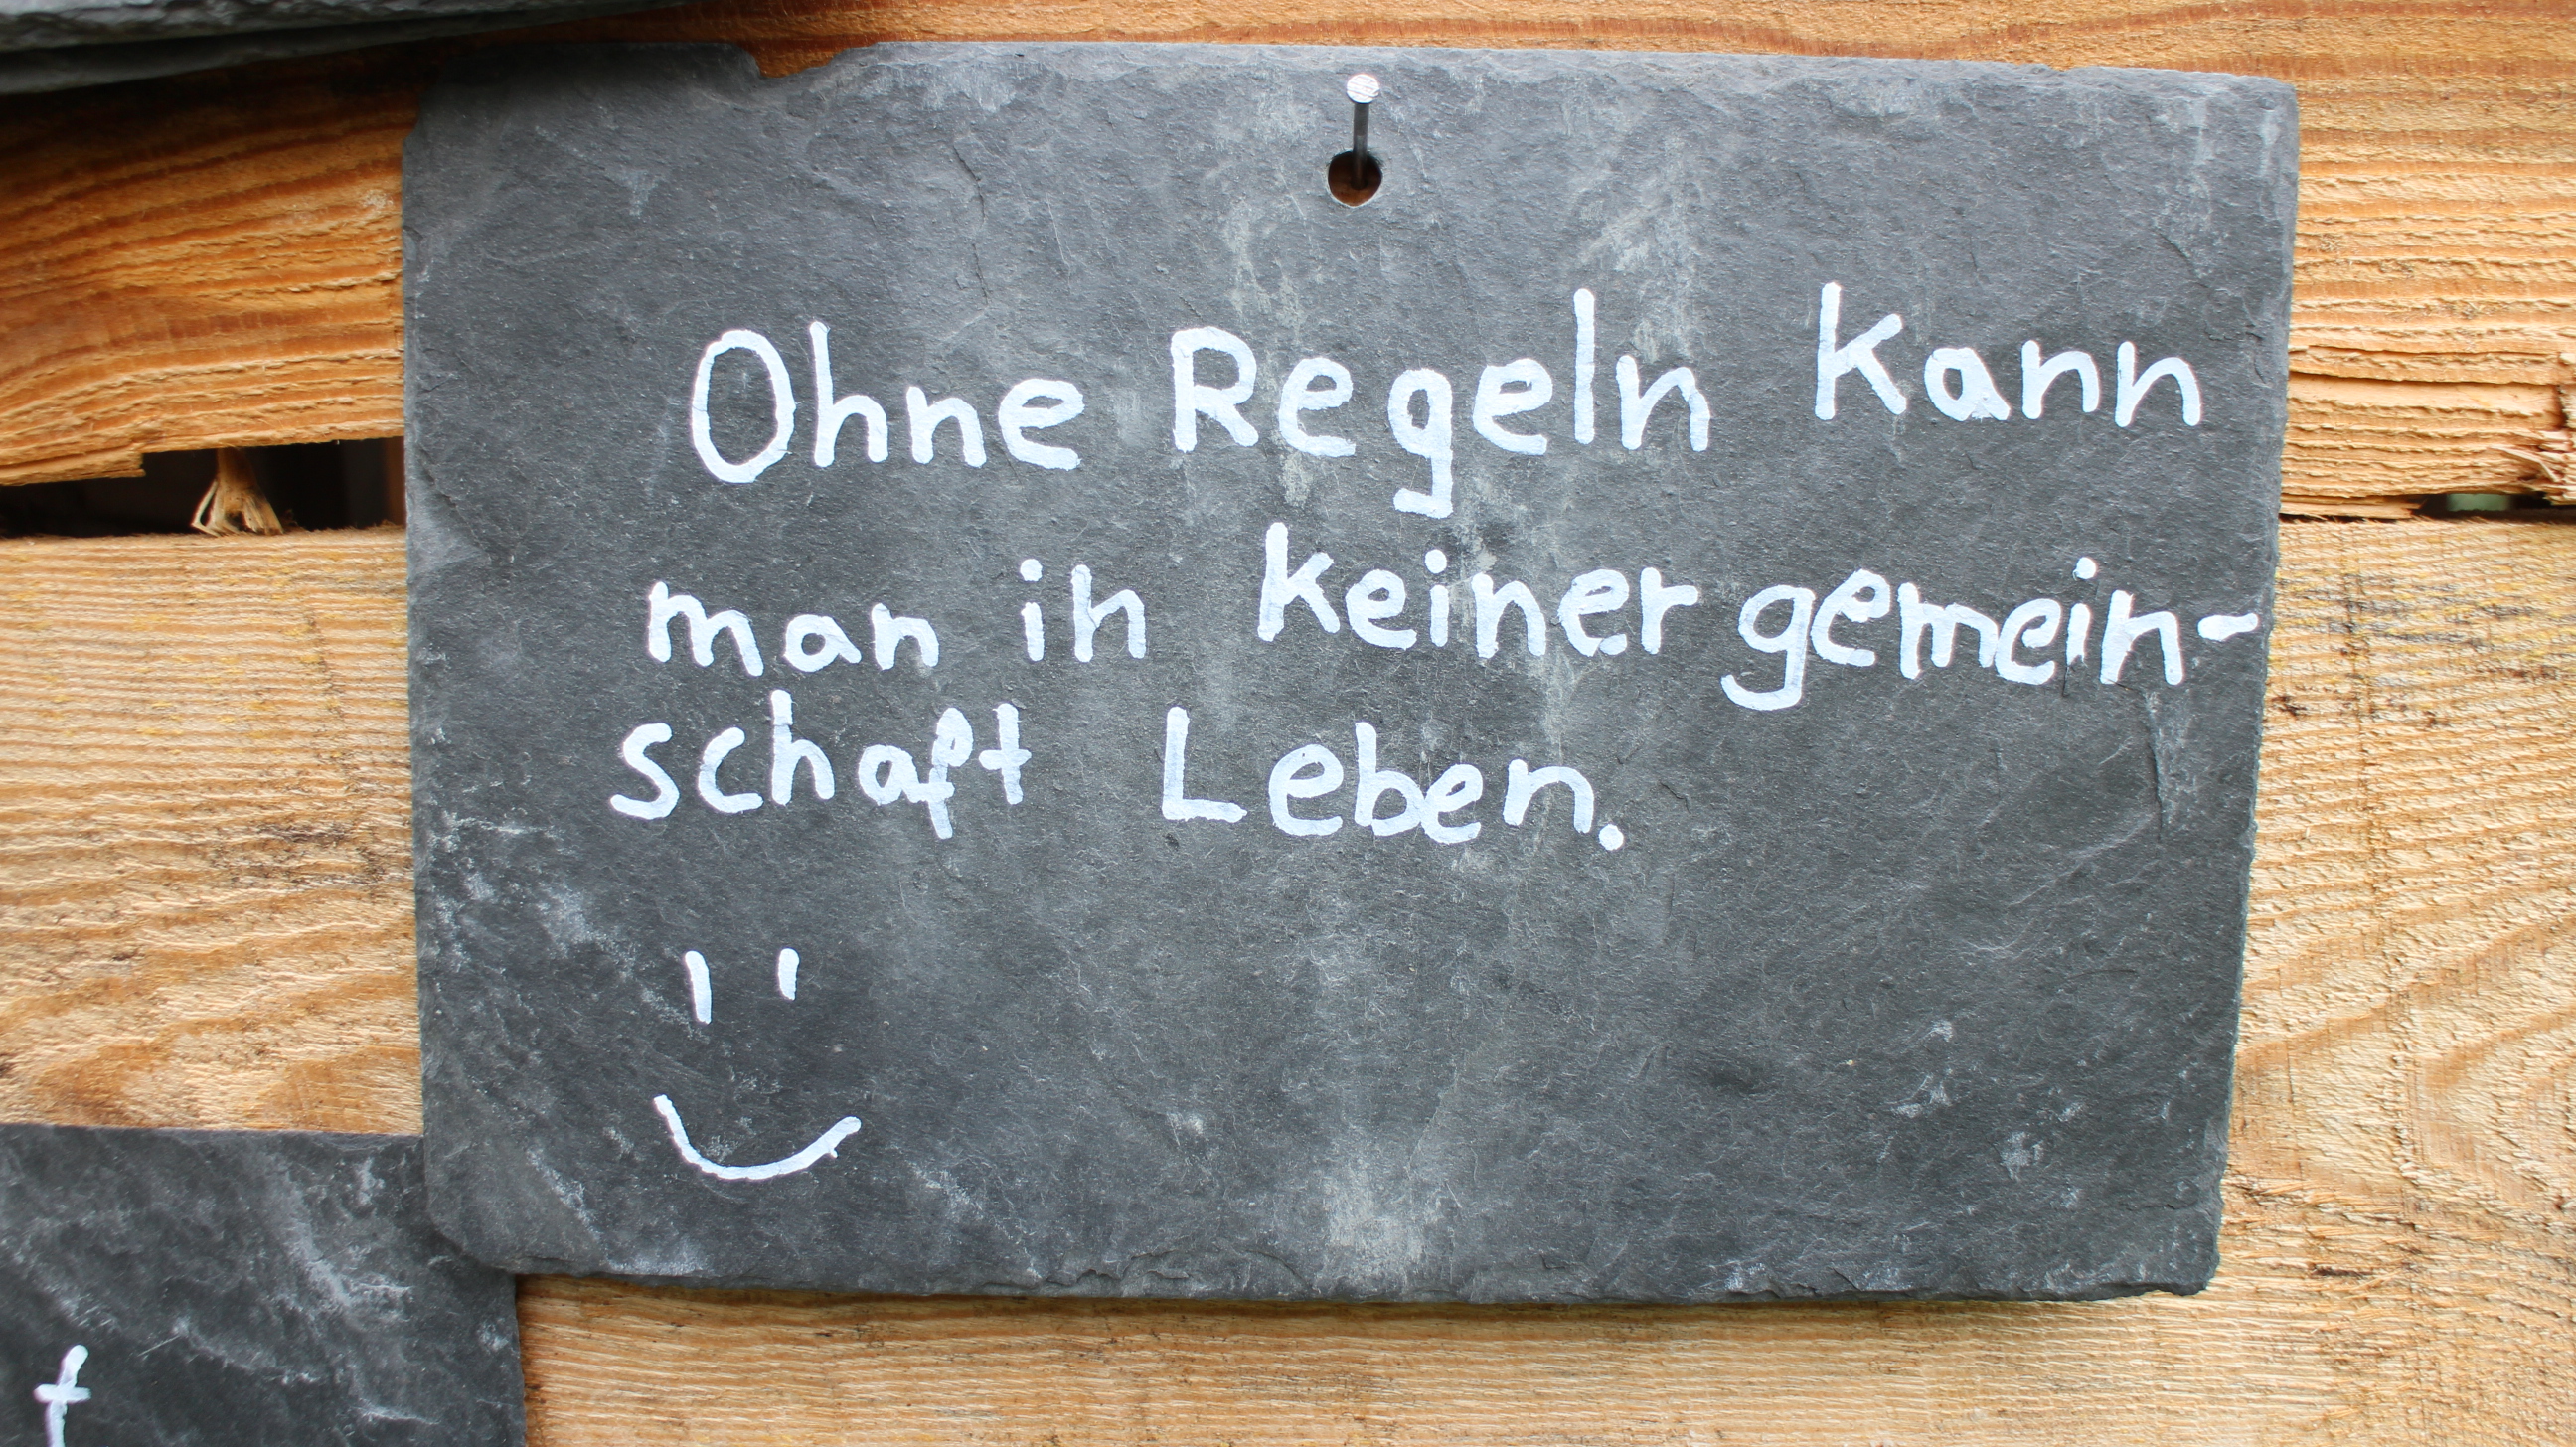 Ohne Regeln kann
man in keiner gemein-
schaft Leben.
t